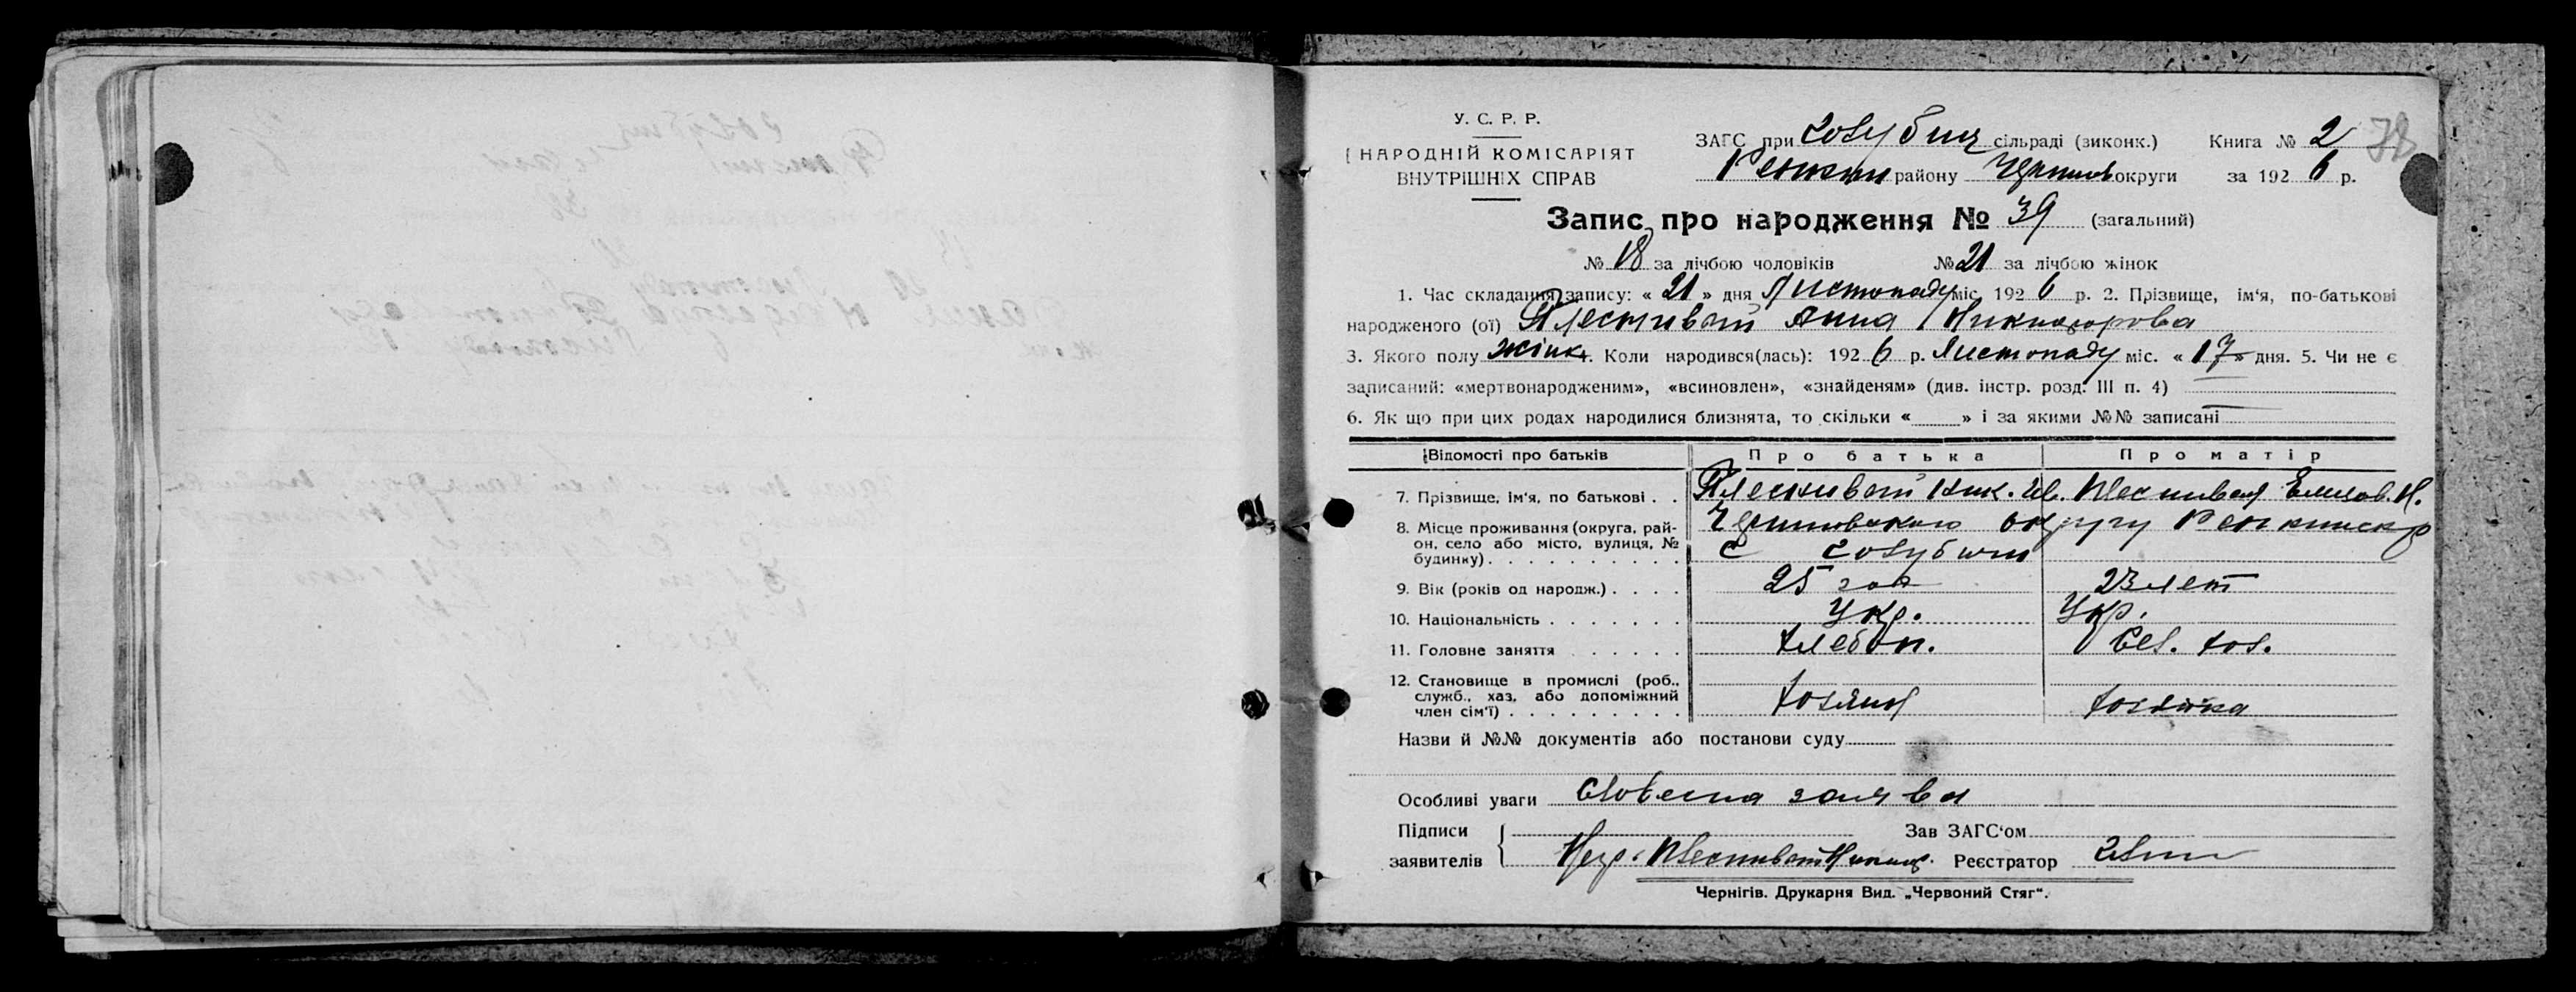 У. С. Р. Р.
НАРОДНІЙ КОМІСАРІЯТ
ВНУТРІШНІХ СПРАВ
ЗАГС при Голубич сільраді (виконк.) Книга № 2
району округи за 192 6 р.
Запис про народження № 39 (загальний)
№ 18 за лічбою чоловіків № 21 за лічбою жінок
1. Час складання запису: « 21 » дня Листопаду міс. 192 6 р. 2. Прізвище, ім'я, по-батькові
народженого (ої) Плескиввай Анна Никифорова
3. Якого полу жінк. 4. Коли народився(лась): 192 6 р. Листопаду міс. « 17 » дня. 5. Чи не є
записаний: «мертвонародженим», «всиновлен», «знайденям» (див. інстр. розд. III п. 4)
6. Як що при цих родах народилися близнята, то скільки « » і за якими №№ записані
Відомості про батьків Про батька Про матір
7. Прізвище, ім'я, по батькові . . Ник. Ів. Елизов. Н.
8. Місце проживання (округа, рай-
он, село або місто, вулиця, №
будинку) . . . . . . . . . . округу
с
9. Вік (років од народж.) . . . . 25 год 23 лет
10. Національність . . . . . . . Укр. Укр.
11. Головне заняття . . . . . Хлебоп. Сел. хоз.
12. Становище в промислі (роб.,
служб., хаз. або допоміжний
член сім'ї) . . . . . . . . . Хозяин Хозяйка
Назви й №№ документів або постанови суду
Особливі уваги Словесна заява
Підписи Зав ЗАГС'ом
заявителів Негр. Реєстратор
Чернігів. Друкарня Вид. „Червоний Стяг“.